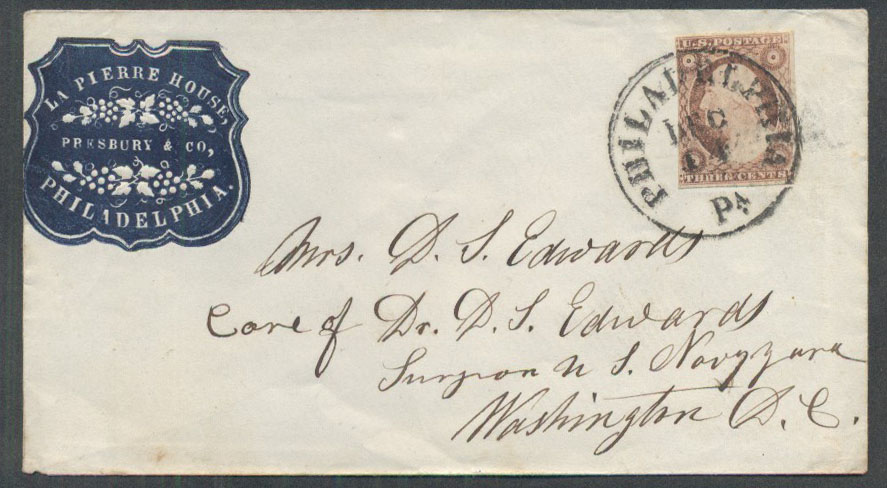 LA PIERRE HOUSE,
PRESBURY & CO,
PHILADELPHIA.
U.S. POSTAGE
THREE CENTS
PHILADELPHIA
DEC
Pa
Mrs. D. S. Edwards
Care of Dr. D. S. Edwards
Surgeon U S. Navy yard
Washington D. C.